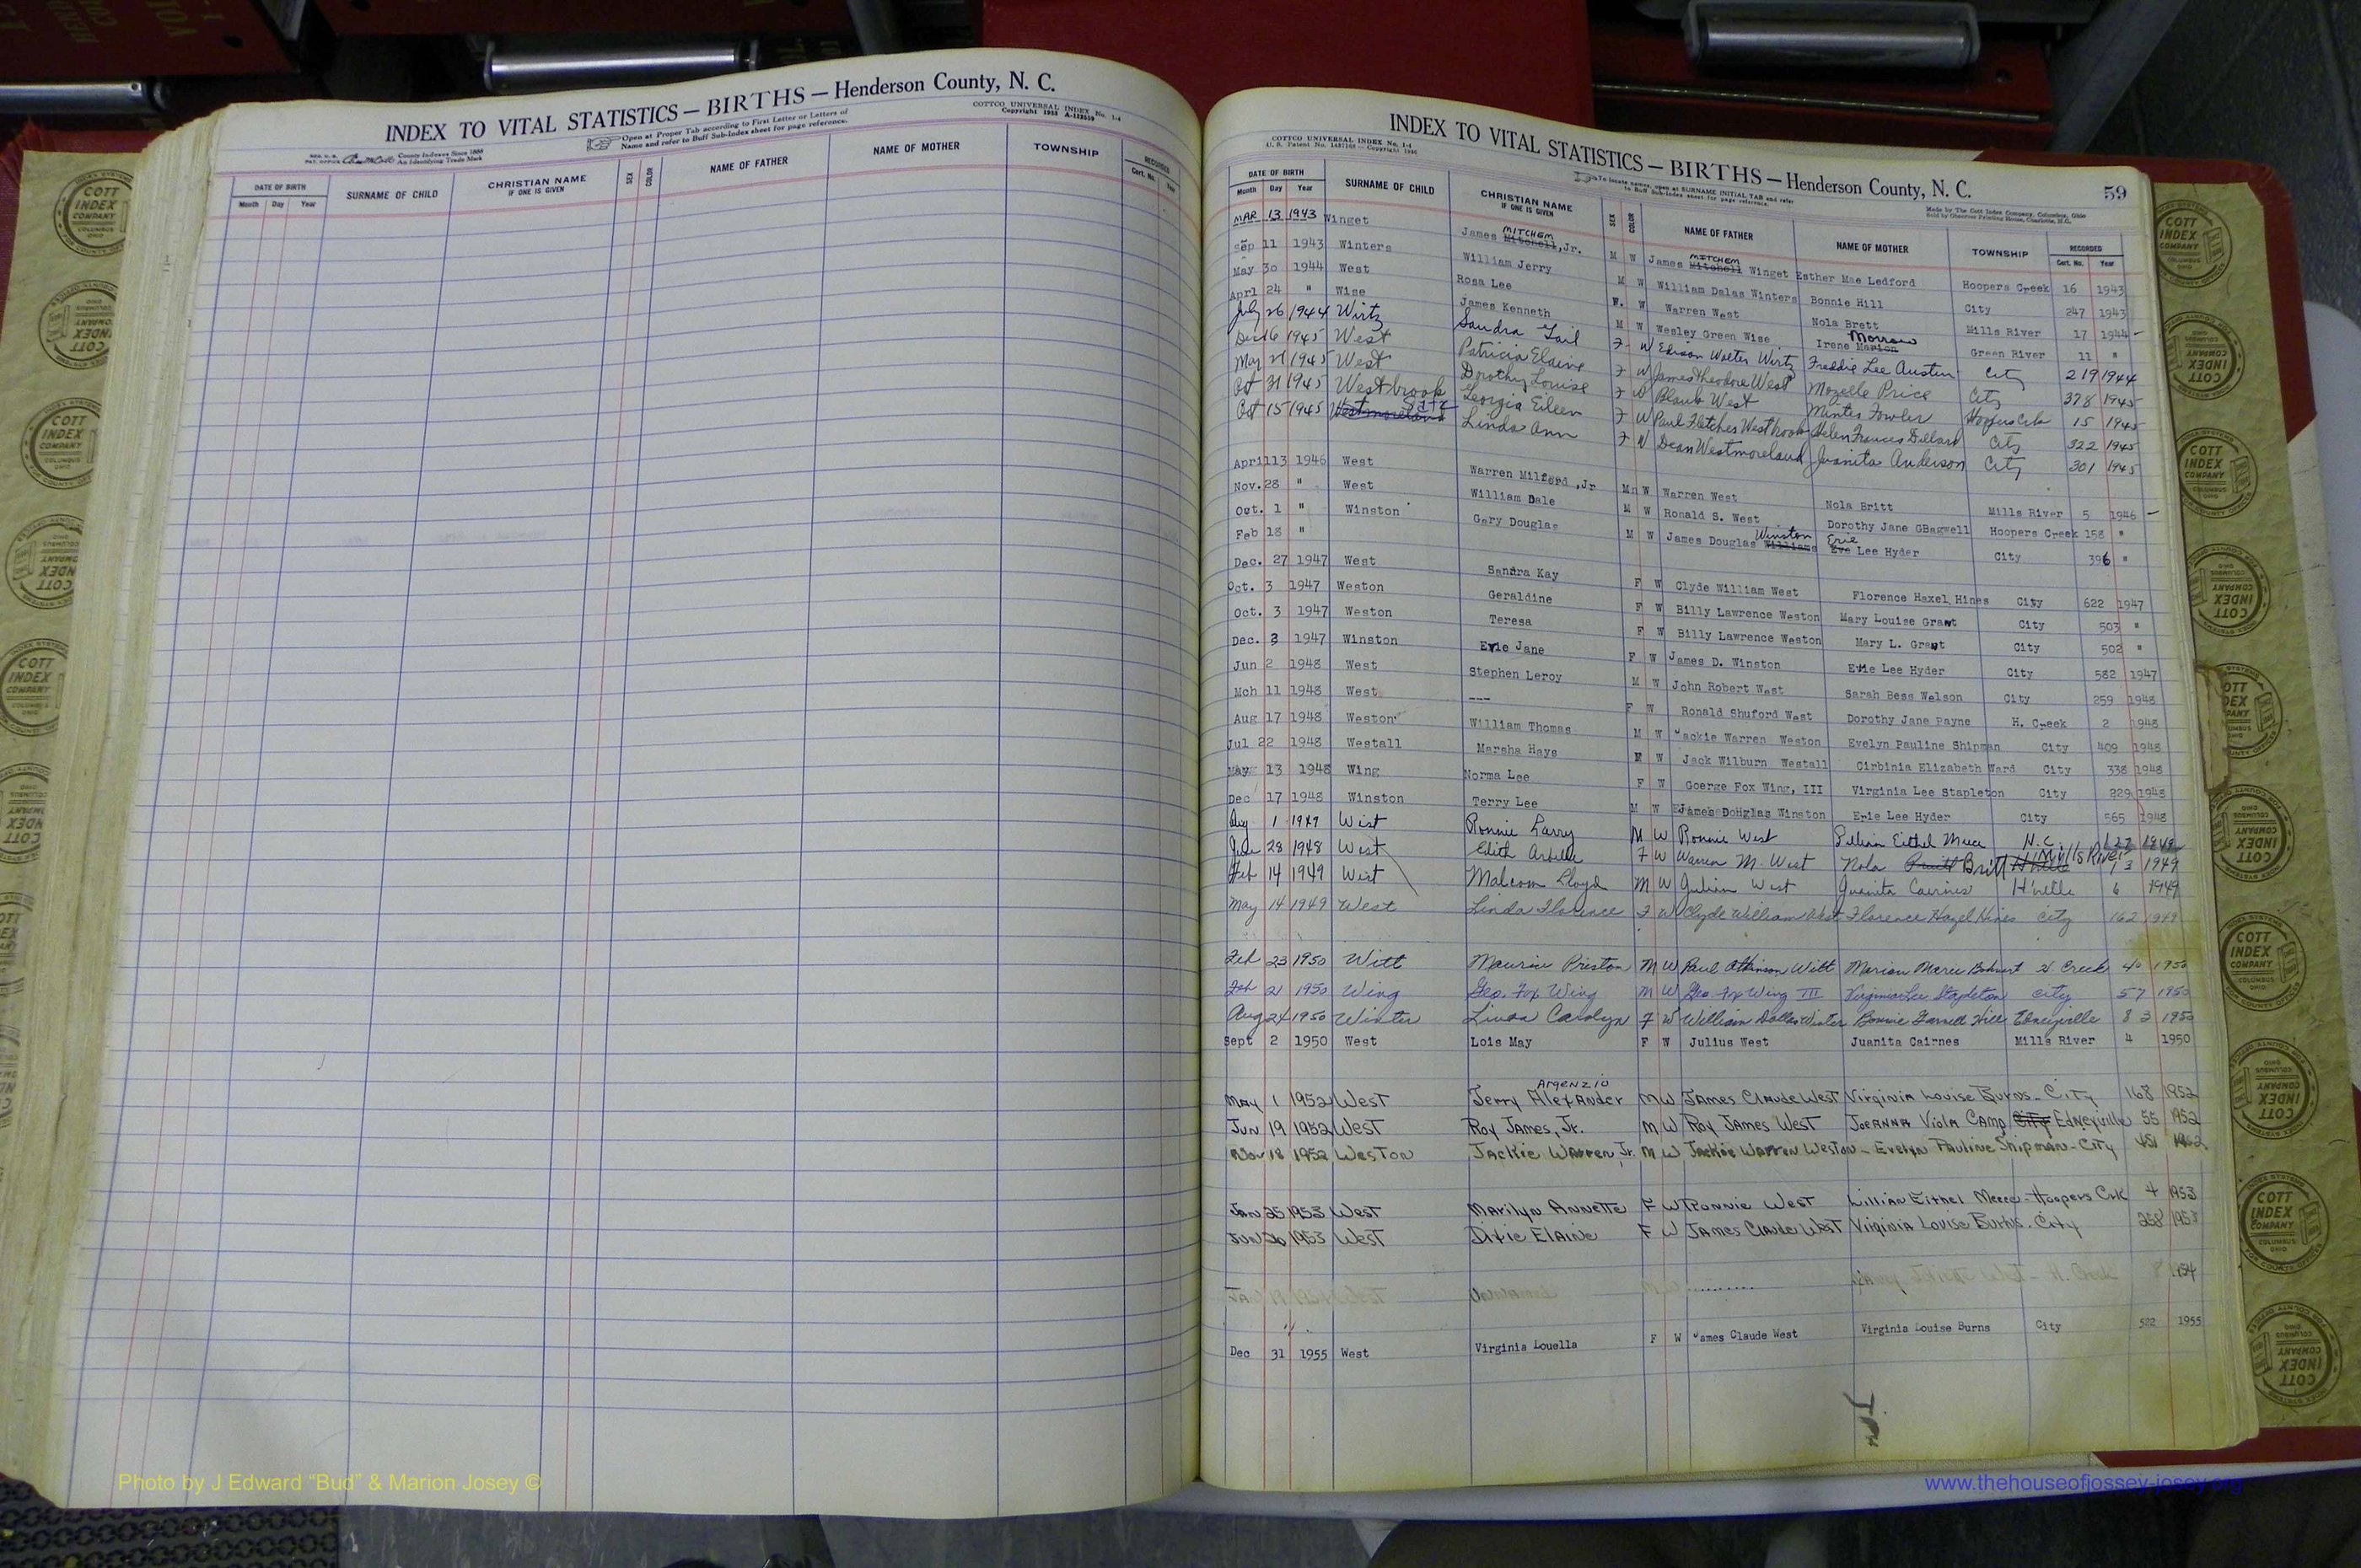 INDEX TO VITAL STATISTICS — BIRTHS — Henderson County, N. C.
COTTCO UNIVERSAL INDEX No. 1-4
Open at Proper Tab according to First Letter or Letters of
Name and refer to Buff Sub-Index sheet for page reference.
County Indexes Since 1888
An Identifying Trade Mark
DATE OF BIRTH SURNAME OF CHILD CHRISTIAN NAME IF ONE IS GIVEN SEX COLOR NAME OF FATHER NAME OF MOTHER TOWNSHIP RECORDED
Month Day Year Cert. No. Year
INDEX TO VITAL STATISTICS — BIRTHS — Henderson County, N. C. 59
COTTCO UNIVERSAL INDEX No. 1-4
To locate names, open at SURNAME INITIAL TAB and refer
to Buff Sub-Index sheet for page reference.
Made by The Cott Index Company, Columbus, Ohio
DATE OF BIRTH SURNAME OF CHILD CHRISTIAN NAME IF ONE IS GIVEN SEX COLOR NAME OF FATHER NAME OF MOTHER TOWNSHIP RECORDED
Month Day Year Cert. No. Year
MAR 13 1943 Winget James MITCHEM Mitchell, Jr. M W James MITCHEM Mitchell Winget Esther Mae Ledford Hoopers Creek 16 1943
Sep 11 1943 Winters William Jerry M W William Dalas Winters Bonnie Hill City 247 1943
May 30 1944 West Rosa Lee F. W Warren West Nola Brett Mills River 17 1944
Aprl 24 " Wise James Kenneth M W Wesley Green Wise Irene Marion Morrow Green River 11 "
July 26 1944 Wirtz Sandra Gail F W Edison Walter Wirtz Freddie Lee Austin City 219 1944
Dec 16 1945 West Patricia Elaine F W James Theodore West Mozelle Price City 378 1945
May 21 1945 West Dorothy Louise F W Blank West Mintes Fowler Hoopers Crk 15 1945
Oct 31 1945 Westbrook Georgia Eileen F W Paul Fletcher Westbrook Helen Frances Dillard City 322 1945
Oct 15 1945 Westmoreland Linda Ann F W Dean Westmoreland Juanita Anderson City 301 1945
April 13 1946 West Warren Milford ,Jr M W Warren West Nola Britt Mills River 5 1946
Nov. 28 " West William Dale M W Ronald S. West Dorothy Jane GBagwell Hoopers Creek 158 "
Oct. 1 " Winston Gary Douglas M W James Douglas Williams Winston Eve Erie Lee Hyder City 396 "
Feb 18 "
Dec. 27 1947 West Sandra Kay F W Clyde William West Florence Haxel Hines City 622 1947
Oct. 3 1947 Weston Geraldine F W Billy Lawrence Weston Mary Louise Grant City 503 "
Oct. 3 1947 Weston Teresa F W Billy Lawrence Weston Mary L. Grant City 502 "
Dec. 3 1947 Winston Evie Jane F W James D. Winston Evie Lee Hyder City 582 1947
Jun 2 1948 West Stephen Leroy M W John Robert West Sarah Bess Welson City 259 1948
Mch 11 1948 West --- F W Ronald Shuford West Dorothy Jane Payne H. Creek 2 1948
Aug 17 1948 Weston William Thomas M W Jackie Warren Weston Evelyn Pauline Shipman City 409 1948
Jul 22 1948 Westall Marsha Hays F W Jack Wilburn Westall Cirbinia Elizabeth Ward City 338 1948
May 13 1948 Wing Norma Lee F W Goerge Fox Wing, III Virginia Lee Stapleton City 229 1948
Dec 17 1948 Winston Terry Lee M W James Douglas Winston Erie Lee Hyder City 565 1948
Aug 1 1949 West Ronnie Larry M W Ronnie West Lillian Eithel Mece N.C.
28 1948 West Edith Arbelle F W Warren M. West Nola Britt Mills River 13 1949
Feb 14 1949 West Malcom Lloyd M W Julian West Juanita Cairnes H'ville 6 1949
May 14 1949 West Linda Florence F W Clyde William West Florence Hazel Hines City 162 1949
Feb 23 1950 Witt Maurice Preston M W Paul Atkinson Witt Marion Marie H Creek 40 1950
Feb 21 1950 Wing Geo. Fox Wing M W Geo. Fox Wing III Virginia Lee Stapleton City 57 1950
Aug 24 1950 Winter Linda Carolyn F W William Dallas Winter Bonnie Farnell Hill Edneyville 83 1950
Sept 2 1950 West Lois May F W Julius West Juanita Cairnes Mills River 4 1950
May 1 1952 West Jerry Argenzio Alexander M W James Claude West Virginia Louise Burns - City 168 1952
Jun 19 1952 West Roy James, Jr. M W Roy James West Joeanna Viola Camp City Edneyville 55 1952
Nov 18 1952 Weston Jackie Warren, Jr. M W Jackie Warren Weston - Evelyn Pauline Shipman - City 451 1952
Jan 25 1953 West Marilyn Annette F W Ronnie West Lillian Eithel Mece - Hoopers Crk 4 1953
Jun 20 1953 West Dixie Elaine F W James Claude West Virginia Louise Burns - City 258 1953
West H. Creek 8 1954
Dec 31 1955 West Virginia Louella F W James Claude West Virginia Louise Burns City 522 1955
COTT INDEX COMPANY COLUMBUS OHIO
Photo by J Edward “Bud” & Marion Josey ©
www.thehouseofjossey-josey.org